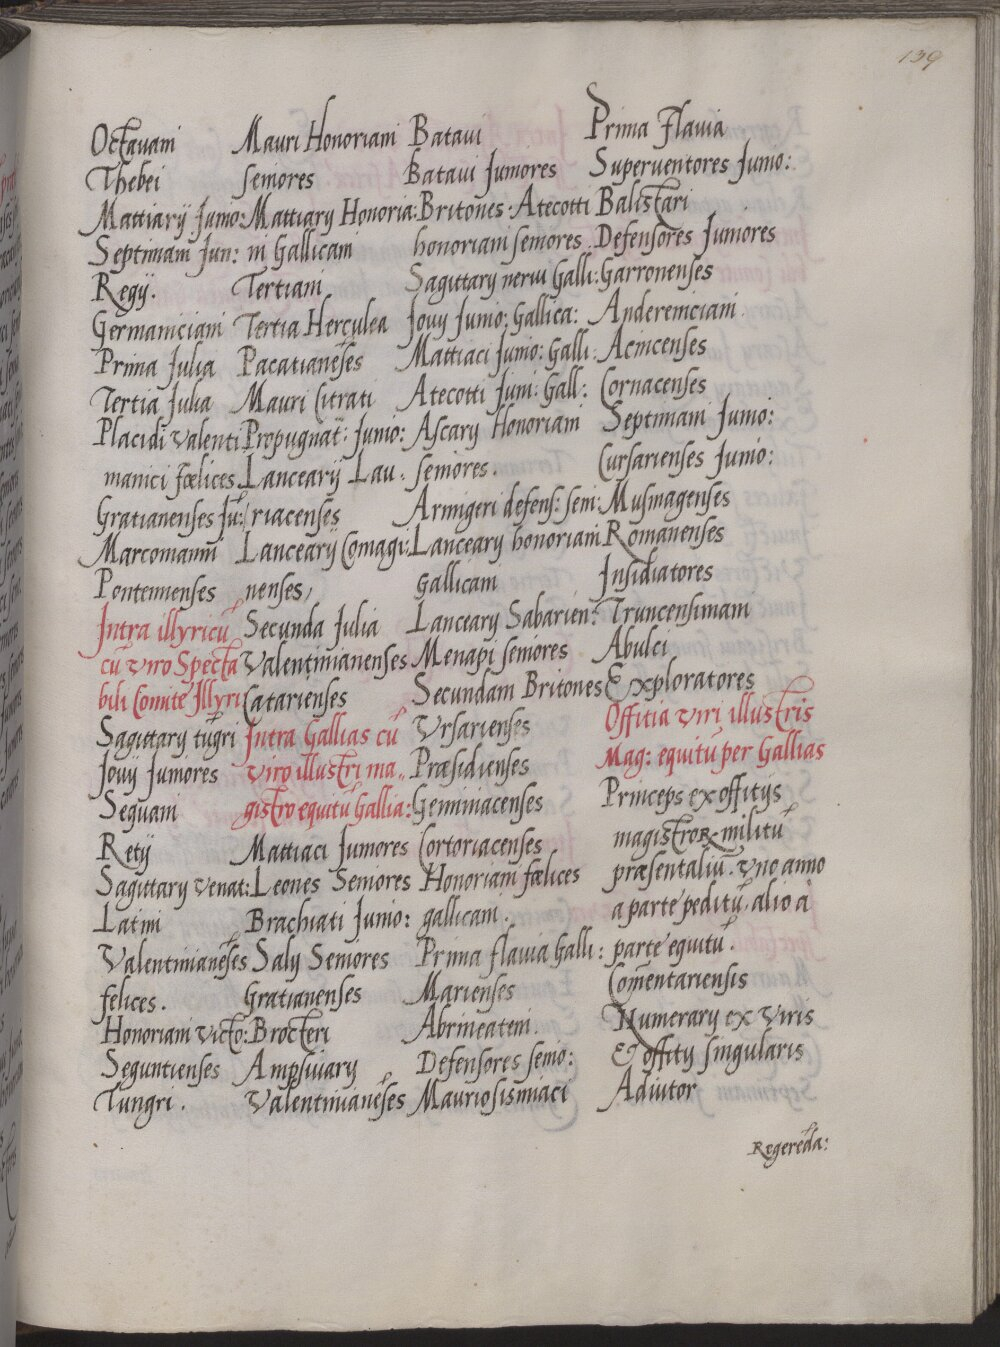 139
Octavani
Thebei
Mattiarij Junio:
Septimani Jun:
Regij.
Germaniciani
Prima Julia
Tertia Julia
Placidi Valenti
manici fœlices
Gratianenses Ju:
Marcomanni
Pontenienses
Intra illyricū
cū viro Specta
bili Comite Illyri
Sagittarij tūgri
Jovij Juniores
Seguani
Retij
Sagittarij venat:
Latini
Valentinianēses
felices.
Honoriani victo:
Seguntienses
Tungri.
Mauri Honoriani
seniores
Mattiarij Honoria:
ni Gallicani
Tertiani
Tertia Herculea
Pacatianēses
Mauri Citrati
Propugnat: Junio:
Lancearij Lau.
riacenses
Lancearij Comagi:
nenses,
Secunda Julia
Valentinianenses
Catarienses
Intra Gallias cū
viro illustri ma„
gistro equitū Gallia:
Mattiaci Juniores
Leones Seniores
Brachiati Junio:
Salij Seniores
Gratianenses
Brocteri
Ampsivarij
Valentinianēses
Batavi
Batavi Juniores
Britones. Atecotti
honoriani seniores.
Sagittarij nervi Galli:
Jovij Junio: Gallica:
Mattiaci Junio: Galli:
Atecotti Juni: Gall:
Ascarij Honoriani
seniores.
Armigeri defens: seni:
Lancearij honoriani
Gallicani
Lancearij Sabarien:
Menapi seniores
Secundam Britones
Ursarienses
Præsidienses
Geminiacenses
Cortoriacenses.
Honoriani fœlices
gallicani.
Prima flavia Galli:
Marienses
Abrincateni.
Defensores senio:
Mauriosismiaci
Prima flavia
Superventores Junio:
Balistari
Defensores Juniores
Garronenses
Andereniciani.
Acincenses
Cornacenses
Septimani Junio:
Cursarienses Junio:
Musmagenses
Romanenses
Insidiatores
Truncensimani
Abulci
Exploratores
Offitia viri illustris
Mag: equitū per Gallias
Princeps ex offitijs
magistroꝝ militū
præsentaliū. uno anno
a parte peditū, alio à
parte equitū.
Comētariensis
Numerarij ex viris
Et offitij singularis
Adiutor
Regerēda: